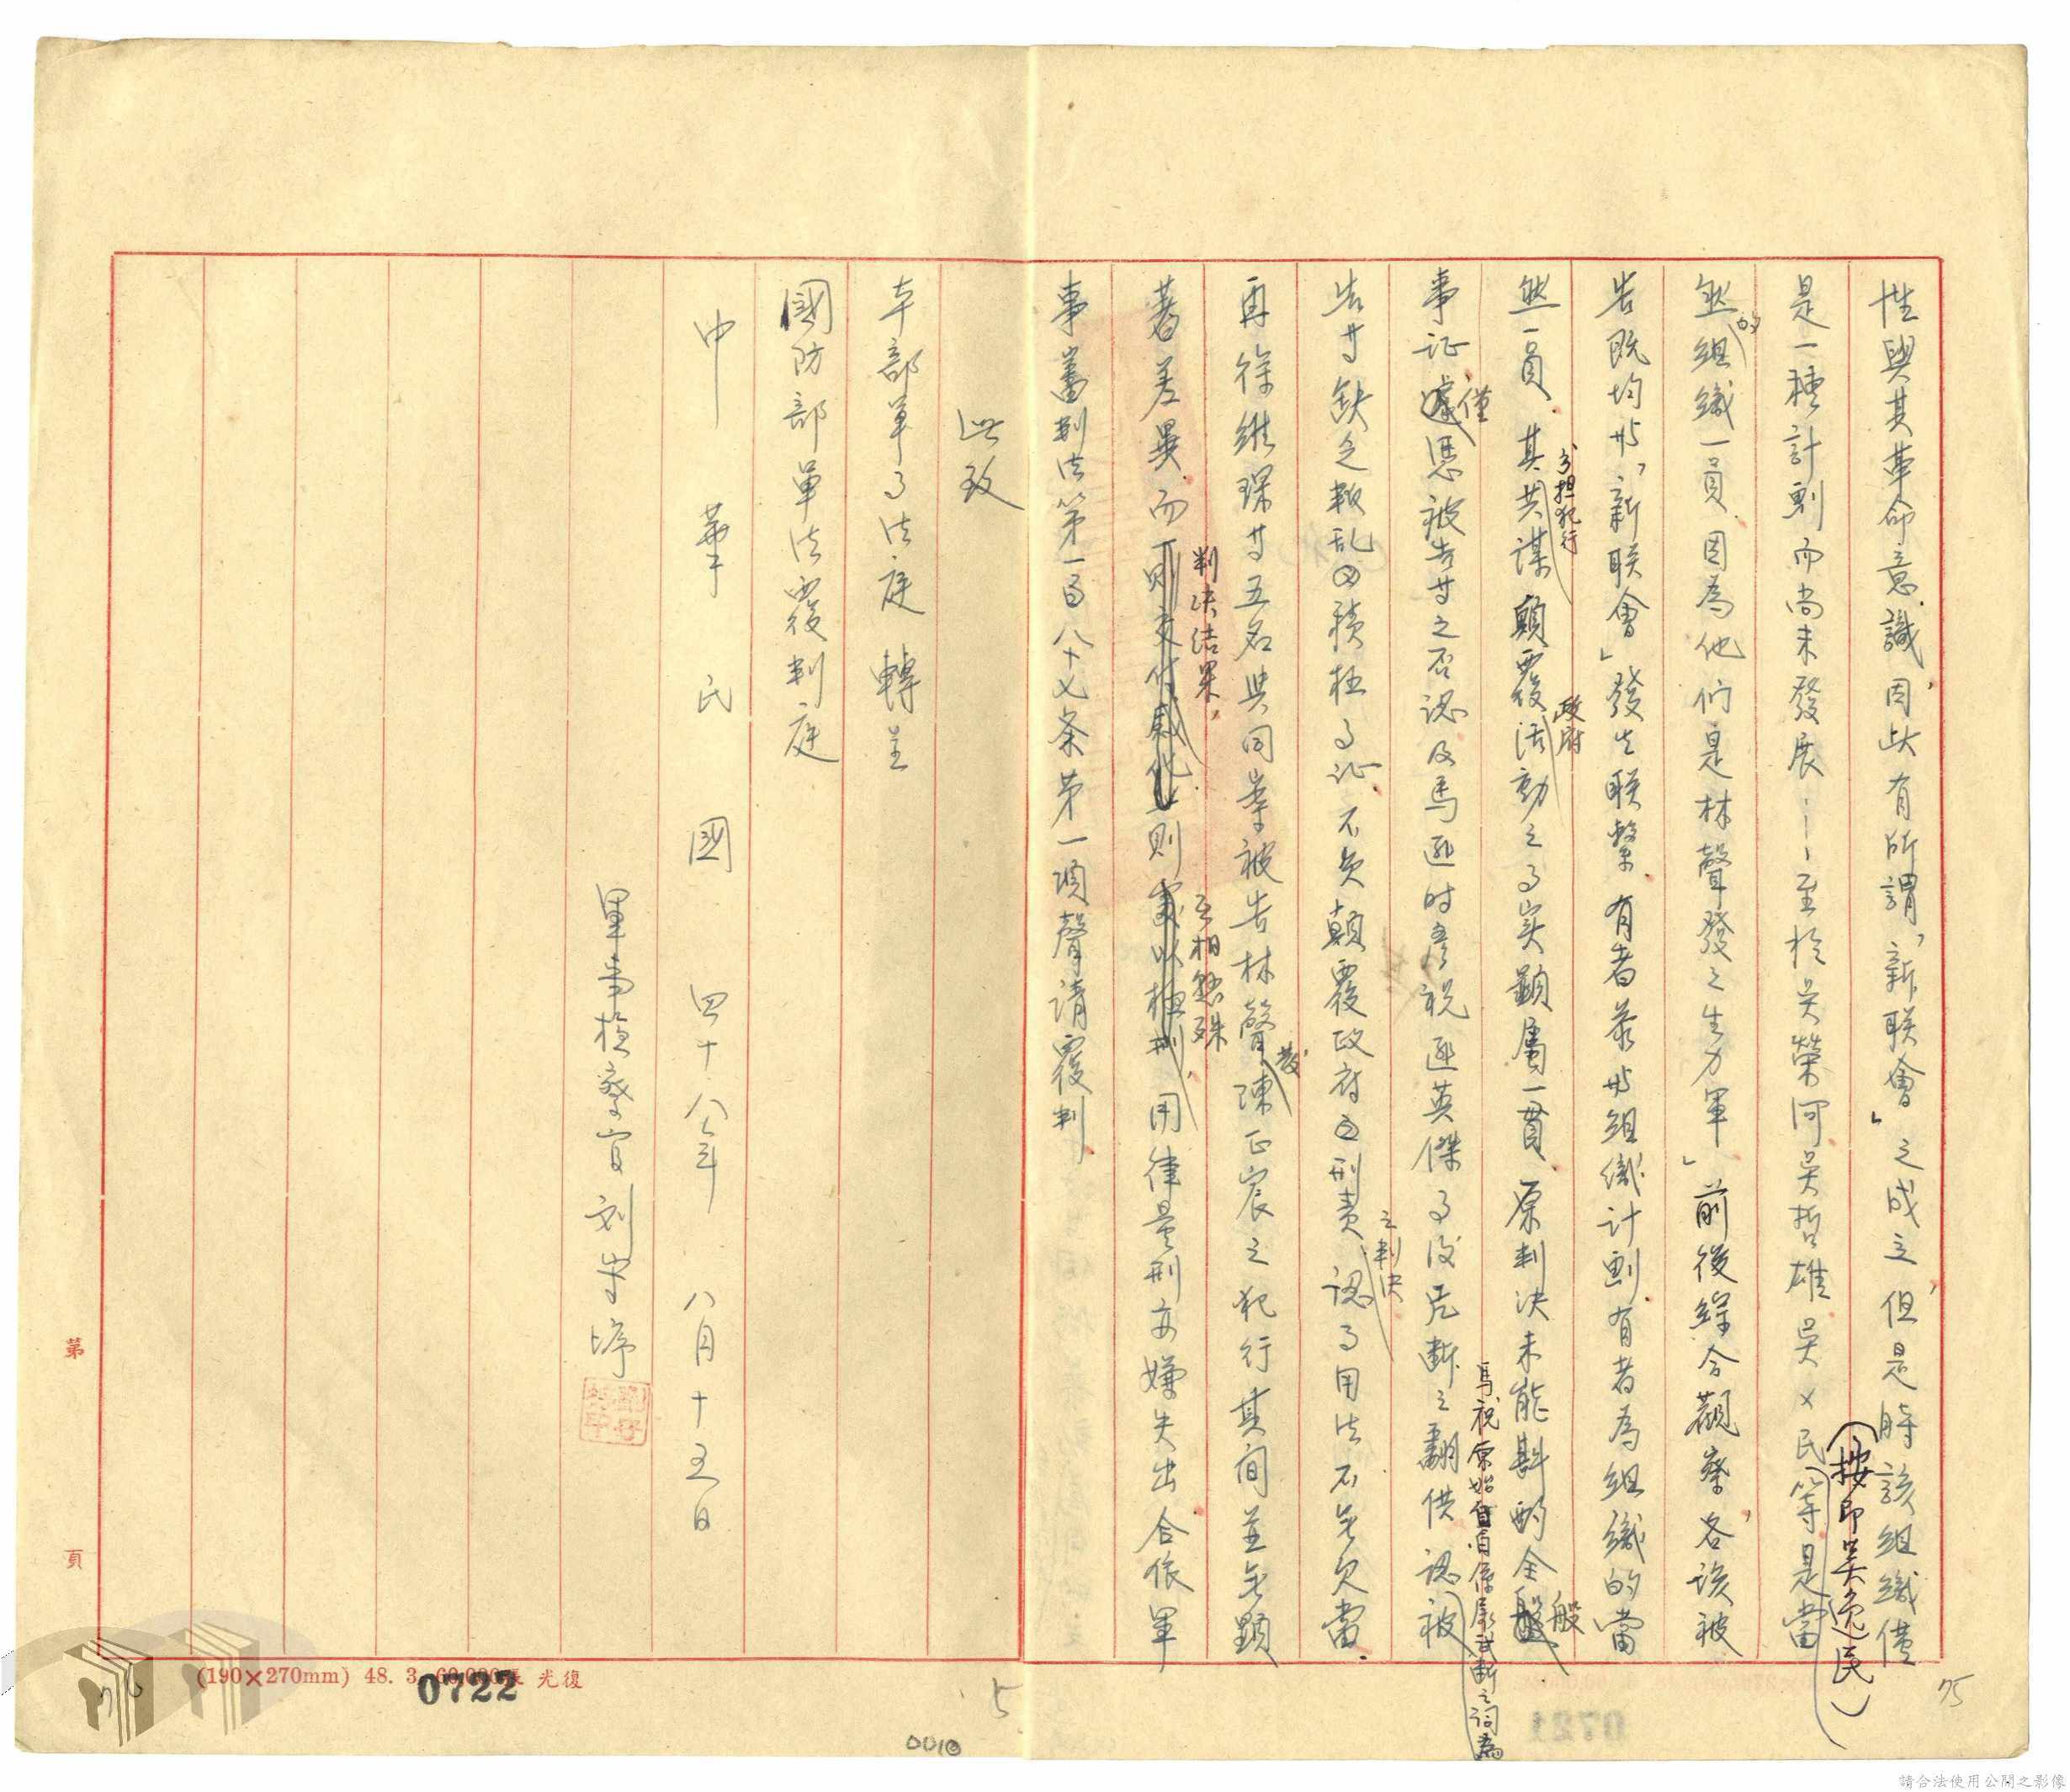 性與其革命意識，因此有所謂「新联會」之成立，但是時該組織僅
是一種計劃而尚未發展……至於吳榮河吳哲雄吳×民（按即吳逸民）等是當
然的組織一員，因為他們是林聲發之生力軍」前後綜合觀察，各該被
告既均與「新联會」發生联繫，有者參與組織計劃，有者為組織的當
然一員，其共謀分担犯行顛覆政府活動之事实顯屬一貫，原判決未能斟酌全般
事证，僅憑被告等之否認及馬 時彥祝 英傑事後 断之翻供，認被
馬、祝原始自白係 断之詞為
告等缺乏叛乱之積極事证，不負顛覆政府之刑責之判決，認事用法不無欠當。
再徐維琛等五名與同案被告林聲發、陳正宸之犯行其间並無顯
著差異，而判決結果，一則交付感化，一則處以極刑，互相懸殊，用律量刑亦嫌失出，合依軍
事審判法第一百八十七条第一項聲請覆判。
此致
本部軍事法庭 轉呈
國防部軍法覆判庭
中華民國四十八年八月十五日
軍事檢察官 刘守
第 頁
(190×270mm) 48. 3. 60,000張 光復
0722
0721
75
76
5
0010
請合法使用公開之影像